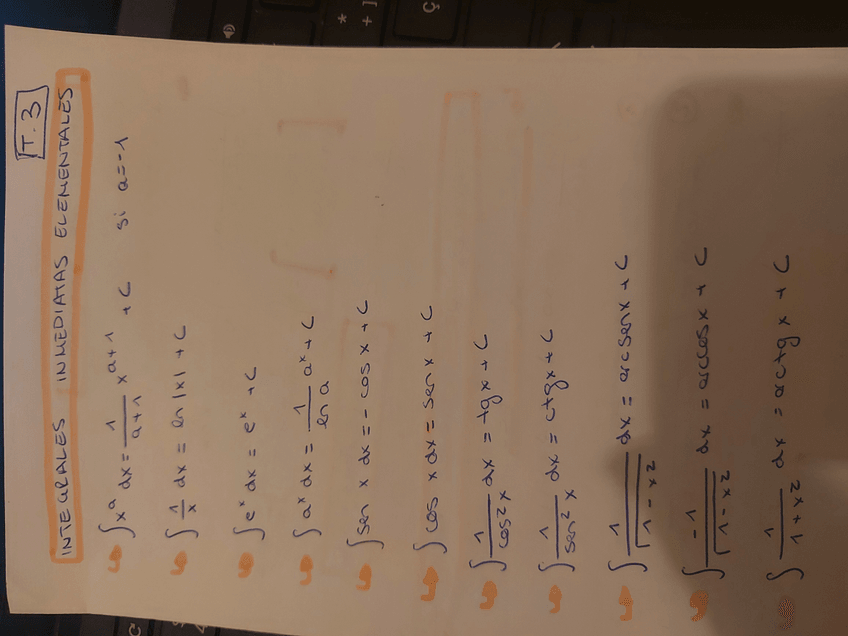 T.3
INTEGRALES INMEDIATAS ELEMENTALES
∫ x^a dx = 1/(a+1) x^(a+1) + C si a=-1
∫ 1/x dx = ln|x| + C
∫ e^x dx = e^x + C
∫ a^x dx = 1/(ln a) a^x + C
∫ sen x dx = - cos x + C
∫ cos x dx = sen x + C
∫ 1/(cos² x) dx = tg x + C
∫ 1/(sen² x) dx = ctg x + C
∫ 1/√(1-x²) dx = arcsen x + C
∫ -1/√(1-x²) dx = arccos x + C
∫ 1/(1+x²) dx = arctg x + C